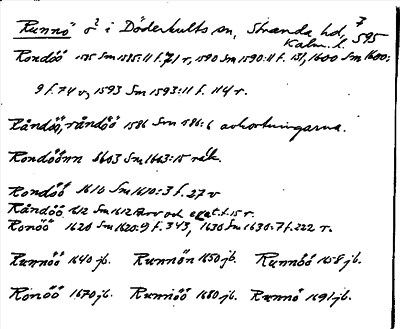 Runnö ö i Döderhults sn, Stranda hd, 7 S95
Kalm. l.
Rondöö 1585 Sm 1585:11 f. 71 r, 1590 Sm 1590:11 f. 131, 1600 Sm 1600:
9 f. 74 v, 1593 Sm 1593:11 f. 114 r.
Råndöö, råndöö 1586 Sm 1586:6 avkortningarna.
Rondöönn 1603 Sm 1603:15 räk.
Rondöö 1610 Sm 1610:3 f. 27 v
Råndöö 1612 Sm 1612 och f. 15 r.
Ronöö 1620 Sm 1620:9 f. 343, 1630 Sm 1630:7 f. 222 r.
Runnöö 1640 jb. Runnön 1650 jb. Runnöö 1658 jb.
Ronöö 1670 jb. Runnöö 1680 jb. Runnö 1691 jb.